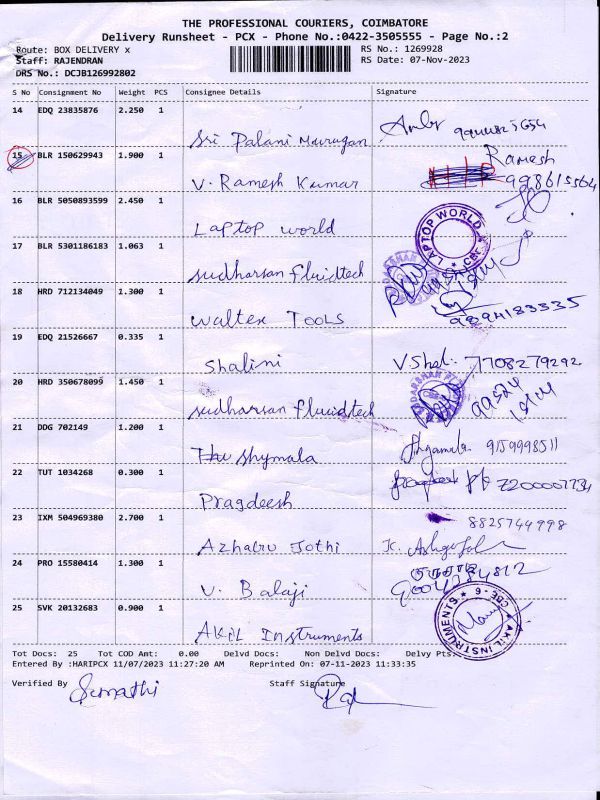 THE PROFESSIONAL COURIERS, COIMBATORE
Delivery Runsheet - PCX - Phone No.:0422-3505555 - Page No.:2
Route: BOX DELIVERY x
RS No.: 1269928
Staff: RAJENDRAN
RS Date: 07-Nov-2023
DRS No.: DCJB126992802
S No Consignment No Weight PCS Consignee Details Signature
14 EDQ 23835876 2.250 1
Sri Palani Murugan
15 BLR 150629943 1.900 1 Ramesh
V. Ramesh Kumar
16 BLR 5050893599 2.450 1
Laptop world LAPTOP WORLD
17 BLR 5301186183 1.063 1
sudharsan fluidtech
18 HRD 712134049 1.300 1
Walter TOOLS 9894183335
19 EDQ 21526667 0.335 1
Shalini 7708279292
20 HRD 350678099 1.450 1
sudharsan fluidtech
21 DDG 702149 1.200 1
Shymala 9159998511
22 TUT 1034268 0.300 1
Pragdeesh 7200007734
23 IXM 504969380 2.700 1 8825744998
Azhagu Jothi
24 PRO 15580414 1.300 1
V. Balaji
25 SVK 20132683 0.900 1
AKIL Instruments AKIL INSTRUMENTS CBE-6
Tot Docs: 25 Tot COD Amt: 0.00 Delvd Docs: Non Delvd Docs: Delvy Pts:
Entered By :HARIPCX 11/07/2023 11:27:20 AM Reprinted On : 07-11-2023 11:33:35
Verified By Sumathi Staff Signature